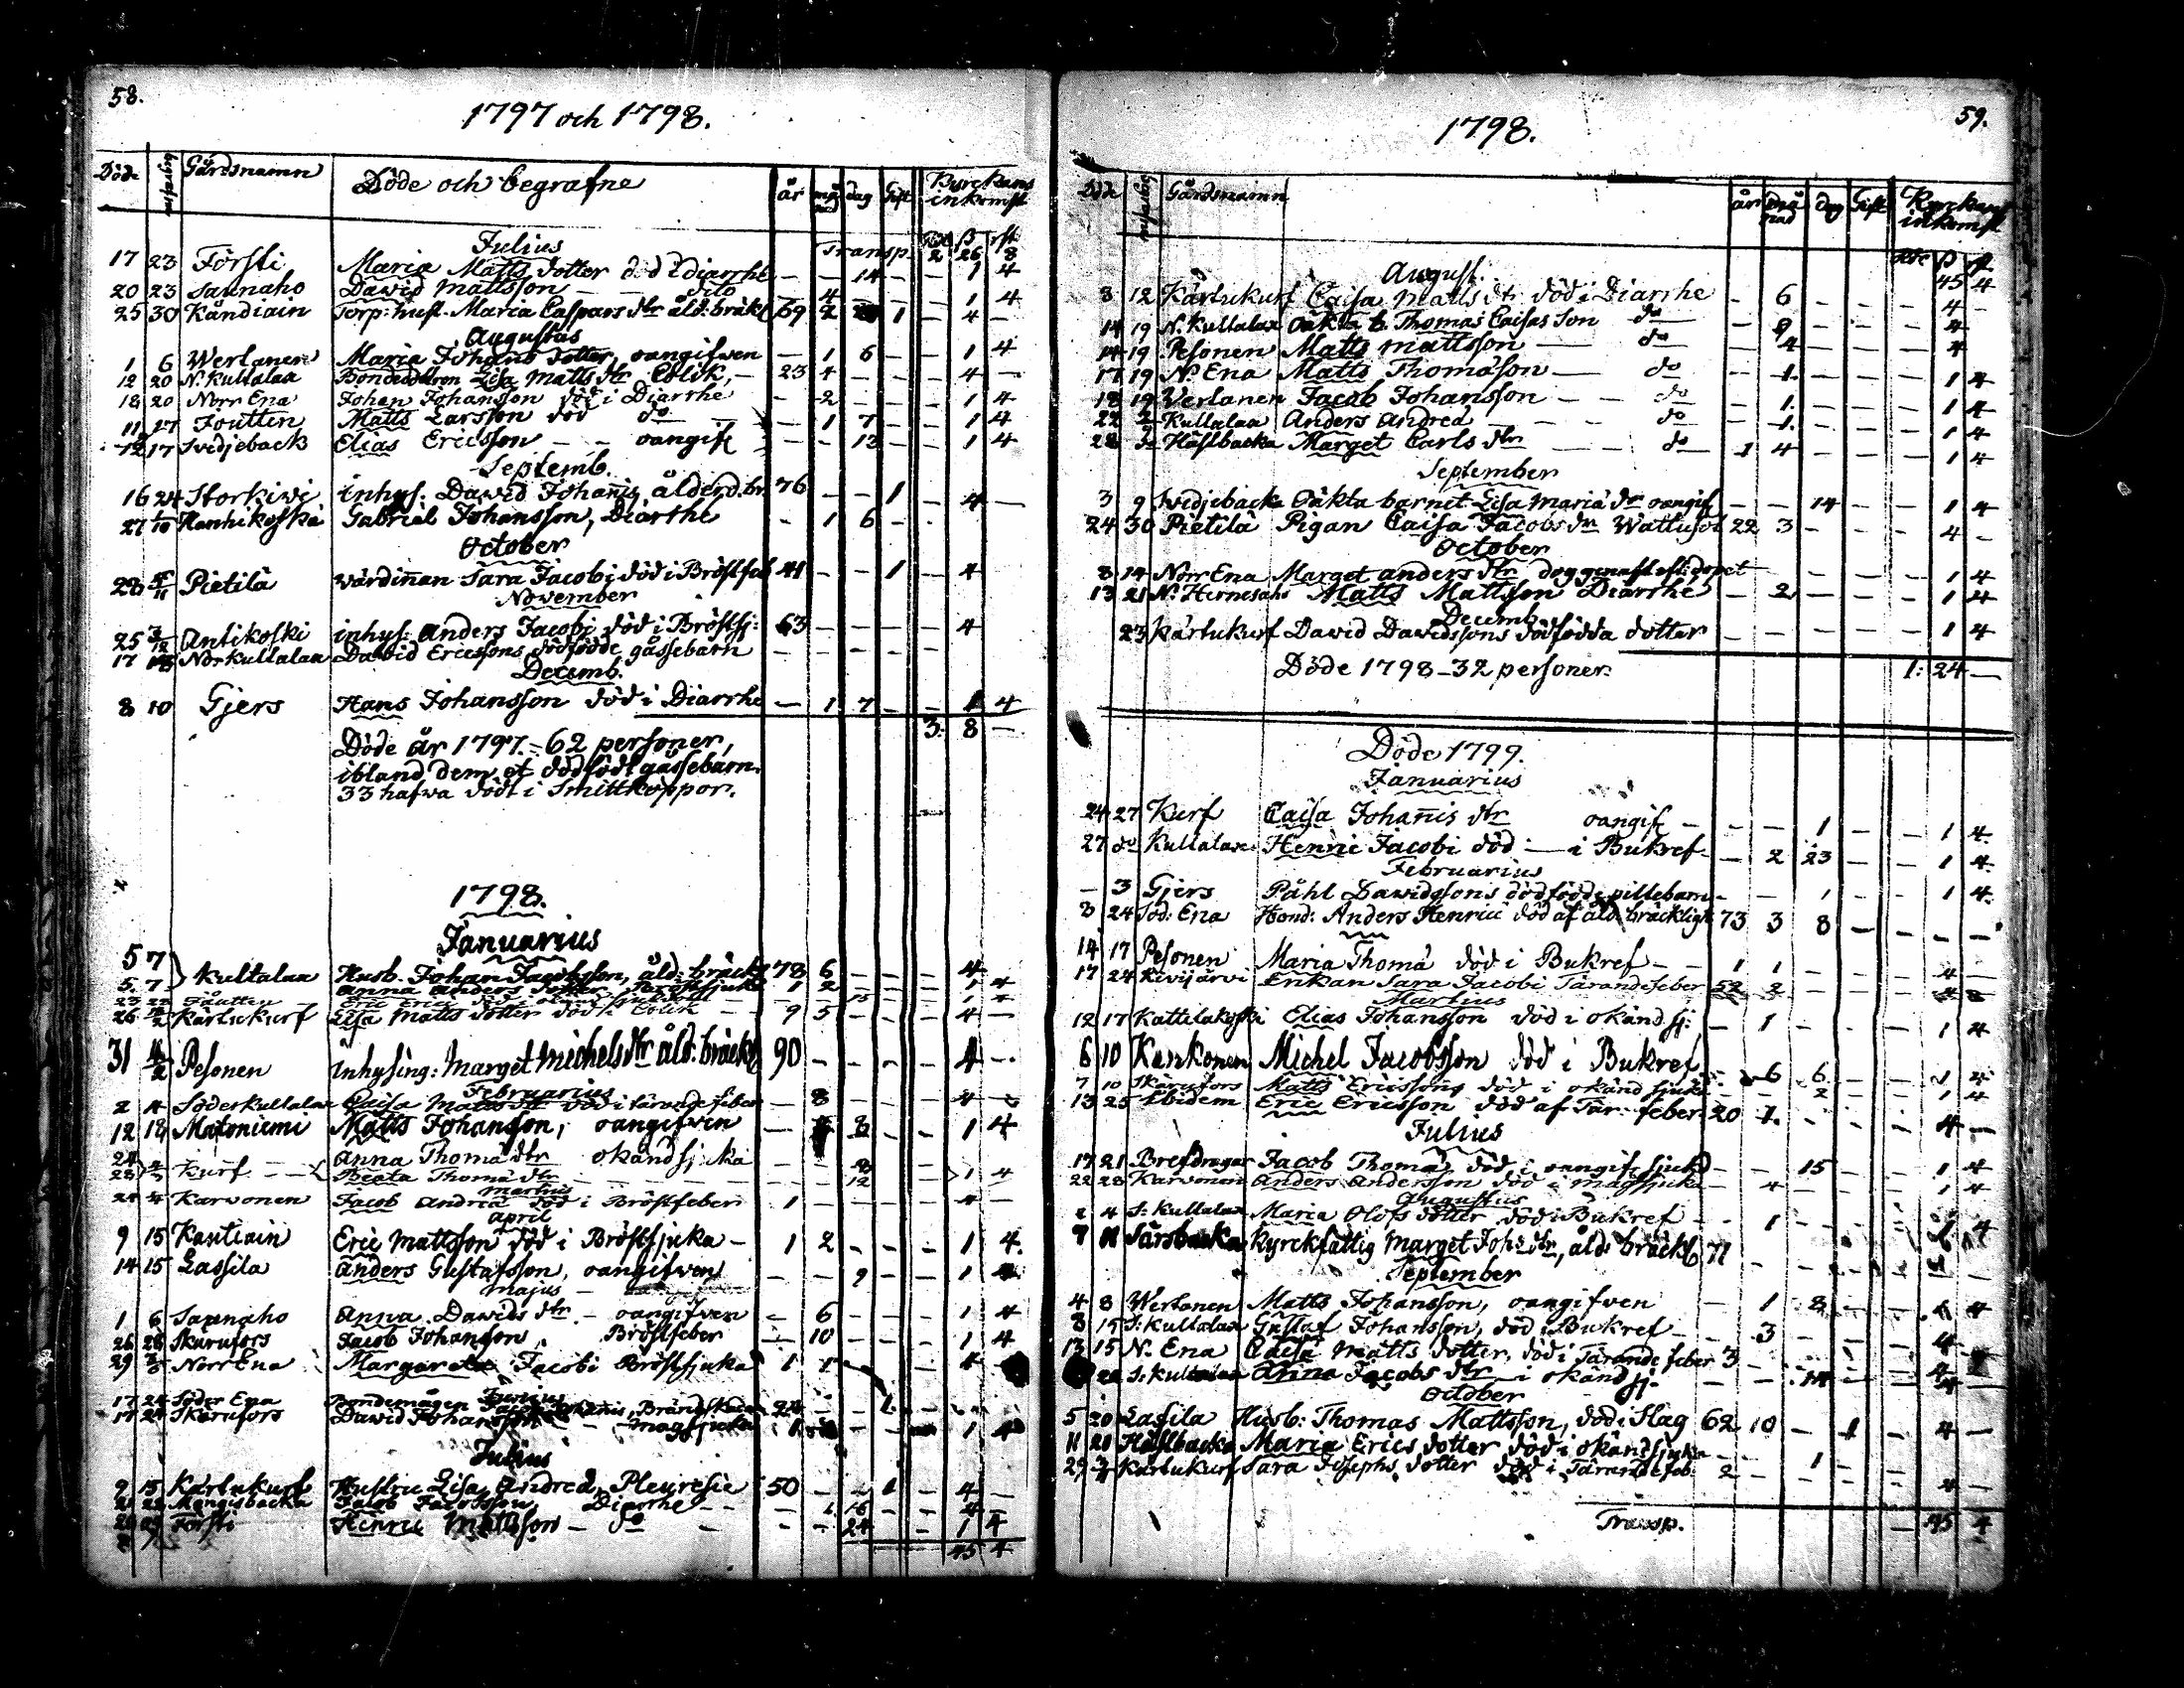 58.
1797 och 1798.
Döde begrafne Gårdsnamn Döde och begrafne år månad dag Gift Kyrckans inkomst
Julius Transp. Rdr ß rst
2 26 8
17 23 Försti Maria Matts dotter död i diarrhe — — 14 — — 1 4
20 23 Saunaho Dawid Mattsson — dito — 4 — — — 1 4
25 30 Kåndiain Torp: hust. Maria Caspars dtr åld: bräkl 69 2 1 — 4 —
Augustus
1 6 Wertanen Maria Johans dotter, oangifwen — 1 6 — — 1 4
12 20 N. Kultalaa Lisa Matts dtr Colik, — 23 4 — — — 4 —
18 20 Norr Ena Johan Johansson död i Diarrhe — 2 — — — 1 4
11 17 Joutten Matts Larsson död do — — 1 7 — — 1 4
12 17 Svidjeback Elias Ericsson — — oangif — — 13 — — 1 4
Septemb.
16 24 Storkiwi inhys. Dawid Johanis ålderd. br. 76 — — 1 — 4 —
27 1/10 Hanhikoski Gabriel Johansson, Diarrhe — 1 6 — —
October
28 5/11 Pietilä wärdinnan Sara Jacobi död i Bröstfeb 41 — — 1 — 4
November
25 3/12 Antikoski inhys: Anders Jacobi död i Bröstsj: 63 — — — — 4
17 Norkultalaa Dawid Ericssons dödfödde gåssebarn — — — — —
Decemb.
8 10 Gjers Hans Johansson död i Diarrhe — 1 7 — — 1 4
3. 8 —
Döde år 1797. — 62 personer,
ibland dem et dödfödt gåssebarn.
33 hafwa dödt i Smittkoppor.
1798.
Januarius
5 7 Kultalaa Husb. Johan Jacobsson, åld: bräckl 78 6 — — — 4
5. 7 Anna Anders dotter, Bröstsjuka 1 2 — — — 1 4
Joutten Eric Erici död i okänd sjukdom — — 15 — — 1 4
26 Kärtukurf Lisa Matts dotter död i Colik — — 9 5 — — — 4 —
31 4/2 Pesonen inhysing: Marget Michels dtr åld: bräckl 90 — — — — 4 —
Februarius
2 4 Söderkultalaa Caisa Matts dtr död i tärande feber — 8 — — — 4 —
12 18 Matoniemi Matts Johansson, oangifwen — 8 — — 1 4
24 Anna Thomä dtr okänd sjuka — — 8 —
28 Kurf Beata Thomä dtr — — — — 12 — 1 4
Martius
24 4 Karvonen Jacob Andreä död i Bröstfeber 1 — — — — 4 —
April
9 15 Kantiain Eric Mattsson död i Bröstsjuka — 1 2 — — — 1 4.
14 15 Lassila Anders Gustafsson, oangifwen — — 9 — — 1 4
Majus
1 6 Saunaho Anna Dawids dtr — oangifwen — 6 — — — 1 4
26 28 Skurufors Jacob Johansson Bröstfeber — 10 — — — 1 4
29 3/6 Norr Ena Margareta Jacobi Bröstsjuka 1 1 —
Junius
17 24 Söder Ena Bondemågen Johanis, Brännsjuka
17 24 Skurufors Dawid Johansson — — magsjuka 1 — — — 1 4
Julius
9 15 Kärtukurf Hustru Lisa Andreä, Pleuresie 50 — — 1 — 4 —
21 22 Mangisbacka Jacob Jacobsson Diarrhe — — 1 16 — — 4 —
Försti Henric Mattsson — do — — — 24 — 1 4
45 4
59.
1798.
Döde begrafne Gårdsnamn år månad dag Gift Kyrckans inkomst
August. Rdr ß rst
45 4
8 12 Kärtukurf Caisa Matts dtr död i Diarrhe — 6 — — — 4 —
14 19 N. Kultalaa Oäkta b. Thomas Caisas Son do — 9 — — — 4
14 19 Pesonen Matts Mattsson — do — 4 — — — 4
17 19 N. Ena Matts Thomäson — do — 1. — — — 1 4
18 19 Wertanen Jacob Johansson — — do — 1. — — — 1 4
22 Kultalaa Anders Andreä — do — 1. — — — 1 4
28 Håslbacka Marget Carls dtr do — 1 4 — — — 1 4
September
3 9 Swidjebacka Oäkta barnet Lisa Mariä dtr oangif — — 14 — — 1 4
24 30 Pietilä Pigan Caisa Jacobs dtr Wattusot 22 3 — — — 4 —
October
8 14 Norr Ena Marget Anders dtr dog genast eft: dopet — — — — — 1 4
13 21 N. Hernesaho Matts Mattsson Diarrhé — 2 — — — 1 4
Decemb
23 Kärtukurf Dawid Dawidssons dödfödda dotter — — — — — 1 4
Döde 1798 — 32 personer. 1: 24 —
Döde 1799.
Januarius
24 27 Kurf Caisa Johanis dtr oangif — — — 1 — — 1 4.
27 do Kultalaa Henric Jacobi död — i Bukref — — 2 23 — — 1 4.
Februarius
— 3 Gjers Påhl Dawidssons dödfödde pillebarn — — 1 — — 1 4.
8 24 Söd: Ena Bond: Anders Henrici död af åld. bräcklighet 73 3 8 — — — —
14 17 Pesonen Maria Thomä död i Bukref — — 1 1 — — — 4 —
17 24 Kivijärvi Enkan Sara Jacobi Tärande feber 52 2 — — — 4 —
Martius
12 17 Kattilakoski Elias Johansson död i okänd sj: — 1 — — — 1 4
6 10 Kankonen Michel Jacobsson död i Bukref — 6 6 — — 1 4
7 10 Skärufors Matts Ericssons död i okänd sjuka — — 2 — — 1 4
13 25 Ibidem Eric Ericsson död af Tär: feber 20 1. — — — 4 —
Julius
17 21 Brefdragar Jacob Thomä död i oangif: sjukd — — 15 — — 1 4
22 28 Karvonen Anders Andersson död i magsjuka — 4 — — — 1 4
Augustus
2 4 S: Kultalaa Maria Olofs dotter död i Bukref — — 1 — — — 1 4
9 11 Särsbacka Kyrckfattig Marget Johs dtr, åld: bräckl 71 — — — —
September
4 8 Wertanen Matts Johansson, oangifwen — 1 8 — — 1 4
8 15 S: Kultalaa Gustaf Johansson, död i Bukref — — 3 — — — 4 —
13 15 N. Ena Caisa Matts dotter, död i Tärande feber 3 — — — — 4
22 S: Kultalaa Anna Jacobs dtr — i okänd sj. — — 14 — — 4 —
October
5 20 Lassila Husb: Thomas Mattsson, död i Slag 62 10 — 1 — 4 —
11 20 Håslbacka Maria Erics dotter död i okänd sjuka — — 1
29 3/11 Kärtukurf Sara Josephs dotter död i Tärande feb. 2 — — — — 4 —
Transp. — 45 4